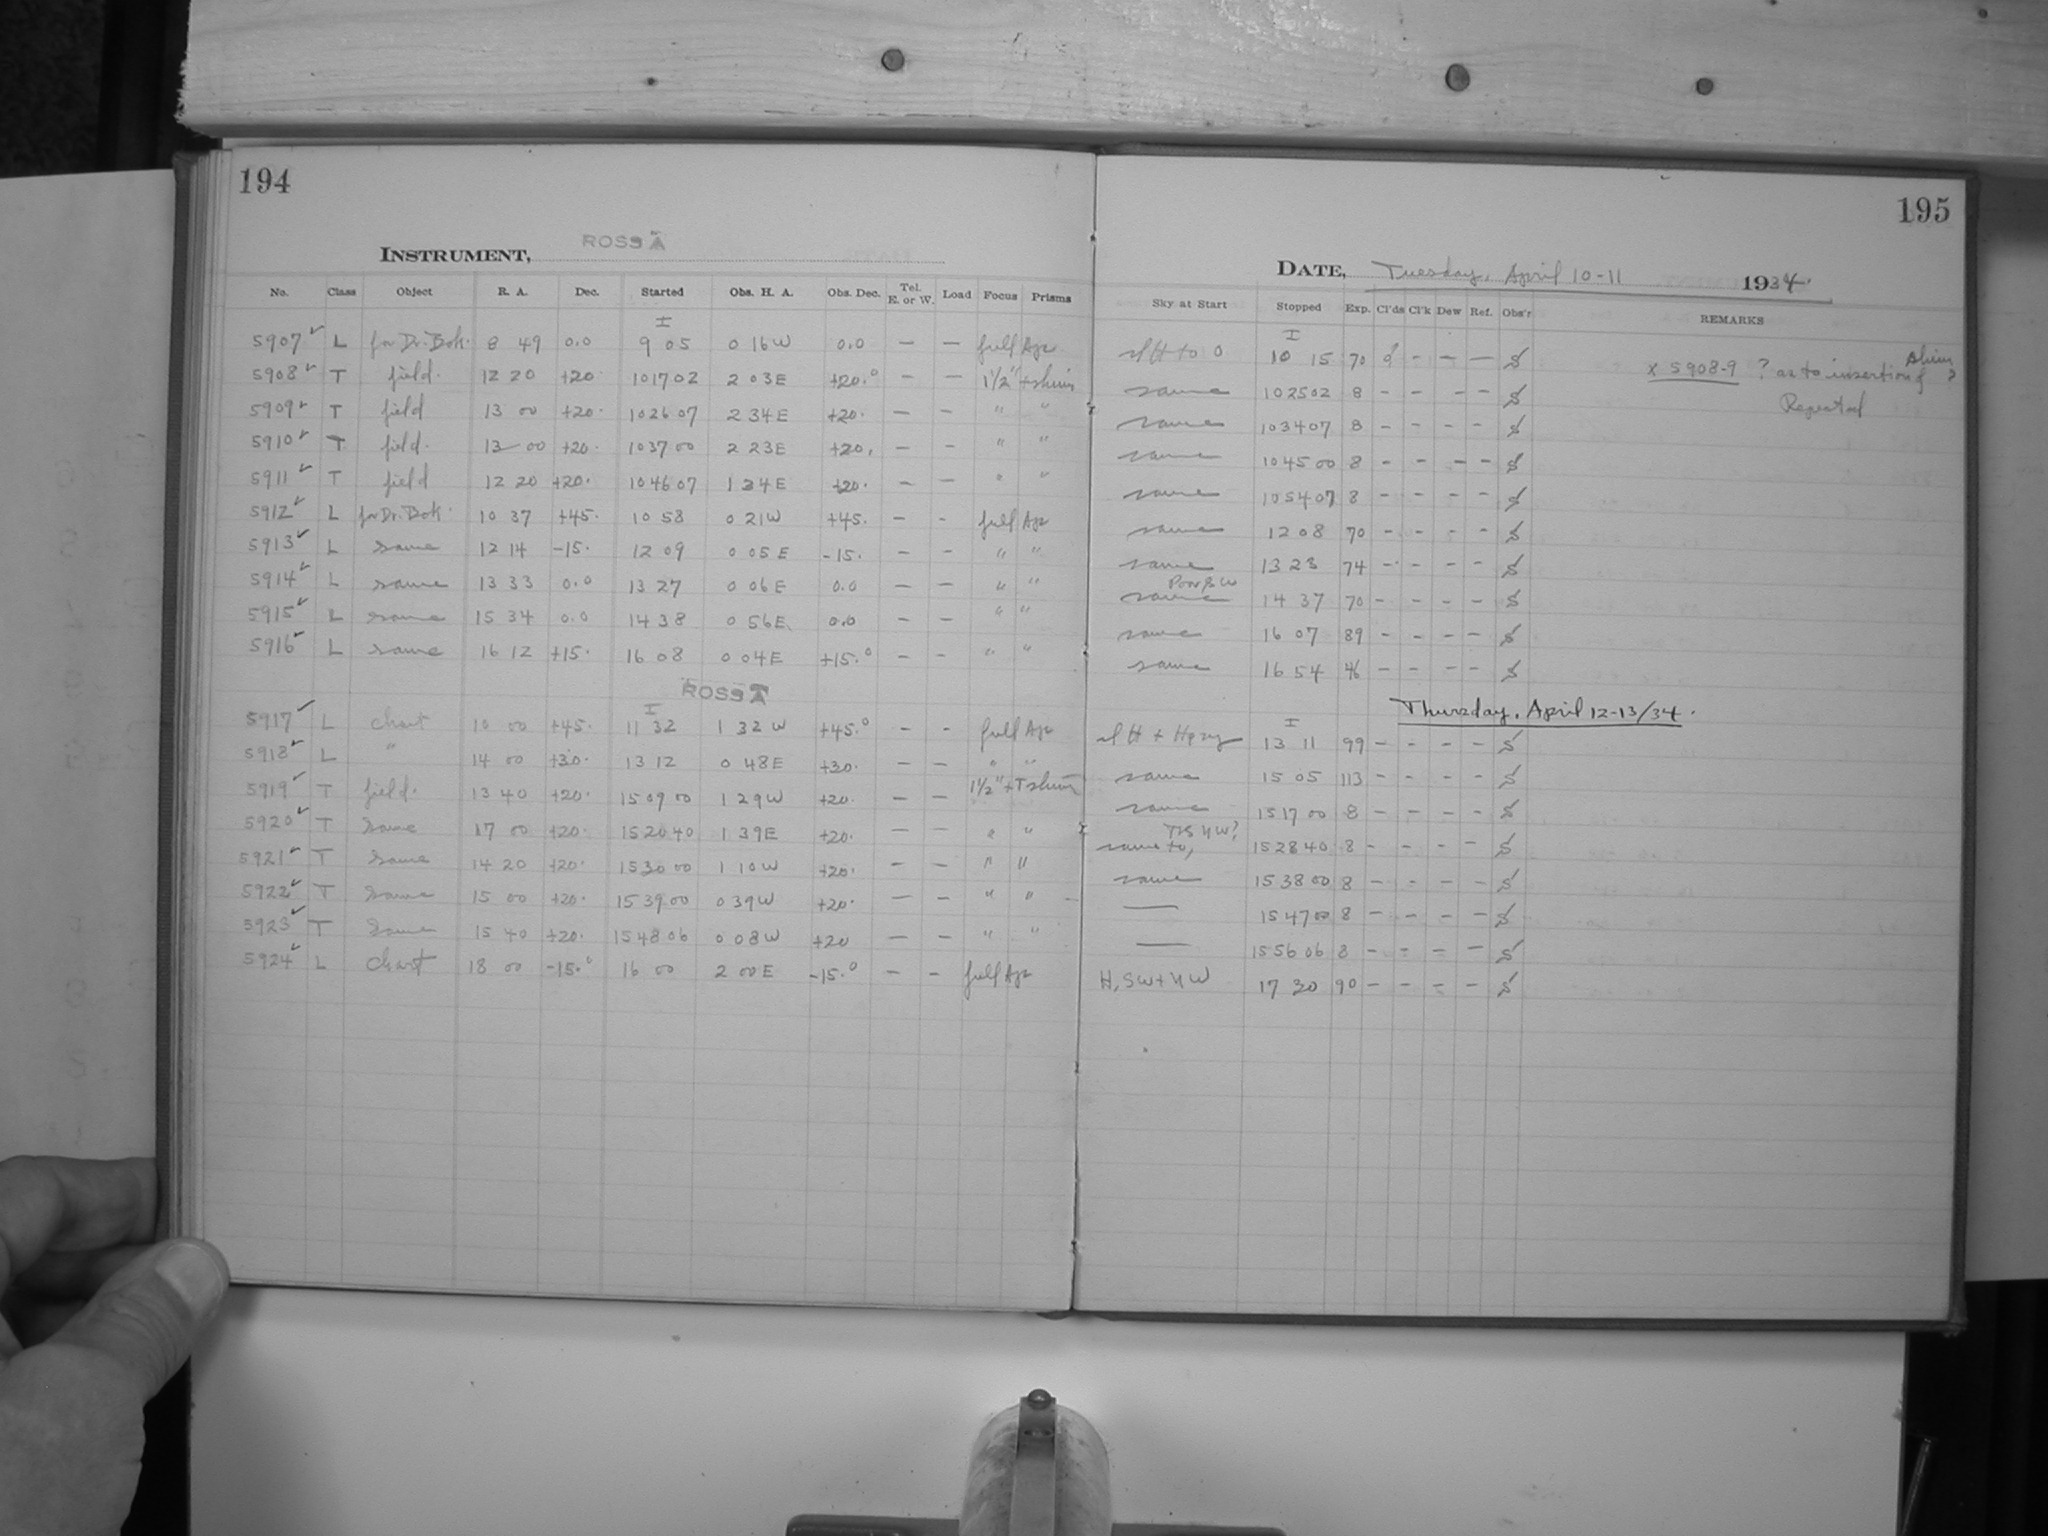 194
ROSS A
INSTRUMENT,
No. Class Object R. A. Dec. Started Obs. H. A. Obs. Dec. Tel. E. or W. Load Focus Prisms
I
5907 ✓ L for Dr. Bok. 8 49 0.0 9 05 0 16 W 0.0 — — full Apr
5908 ✓ T field. 12 20 +20. 10 17 02 2 03 E +20.° — — 1 1/2" + shim
5909 ✓ T field 13 00 +20. 10 26 07 2 34 E +20. — — " "
5910 ✓ T field. 13 00 +20. 10 37 00 2 23 E +20. — — " "
5911 ✓ T field 12 20 +20. 10 46 07 1 34 E +20. — — " "
5912 ✓ L for Dr. Bok. 10 37 +45. 10 58 0 21 W +45. — - full Apr
5913 ✓ L same 12 14 -15. 12 09 0 05 E -15. — — " "
5914 ✓ L same 13 33 0.0 13 27 0 06 E 0.0 — — " "
5915 ✓ L same 15 34 0.0 14 38 0 56 E 0.0 — — " "
5916 ✓ L same 16 12 +15. 16 08 0 04 E +15.° — — " "
ROSS A
I
5917 ✓ L chart 10 00 +45. 11 32 1 32 W +45.° - - full Apr
5918 ✓ L " 14 00 +30. 13 12 0 48 E +30. — — " "
5919 ✓ T field. 13 40 +20. 15 09 00 1 29 W +20. — — 1 1/2" + T shim
5920 ✓ T same 17 00 +20. 15 20 40 1 39 E +20. — — " "
5921 ✓ T same 14 20 +20. 15 30 00 1 10 W +20. — — " "
5922 ✓ T same 15 00 +20. 15 39 00 0 39 W +20. — — " "
5923 ✓ T same 15 40 +20. 15 48 06 0 08 W +20 — — " "
5924 ✓ L chart 18 00 -15.° 16 00 2 00 E -15.° — - full Apr
195
DATE, Tuesday, April 10-11 1934.
Sky at Start Stopped Exp. Cl'ds Cl'k Dew Ref. Obs'r REMARKS
I
H to 0 10 15 70 - — — S x 5908-9 ? as to insertion of shim ?
same 10 25 02 8 - - - - S Repeated
same 10 34 07 8 - - - - S
same 10 45 00 8 - - - - S
same 10 54 07 8 - - - - S
same 12 08 70 - - - - S
same 13 23 74 - - - - S
Poor S W
same 14 37 70 - - - - S
same 16 07 89 - - - - S
same 16 54 46 - - - - S
Thursday, April 12-13/34.
I
H + Hazy 13 11 99 - - - - S
same 15 05 113 - - - - S
same 15 17 00 8 - - - - S
same to, 15 28 40 8 - - - - S
same 15 38 00 8 - - - - S
— 15 47 00 8 - - - - S
— 15 56 06 8 - - - - S
H, SW + NW 17 30 90 - - - - S